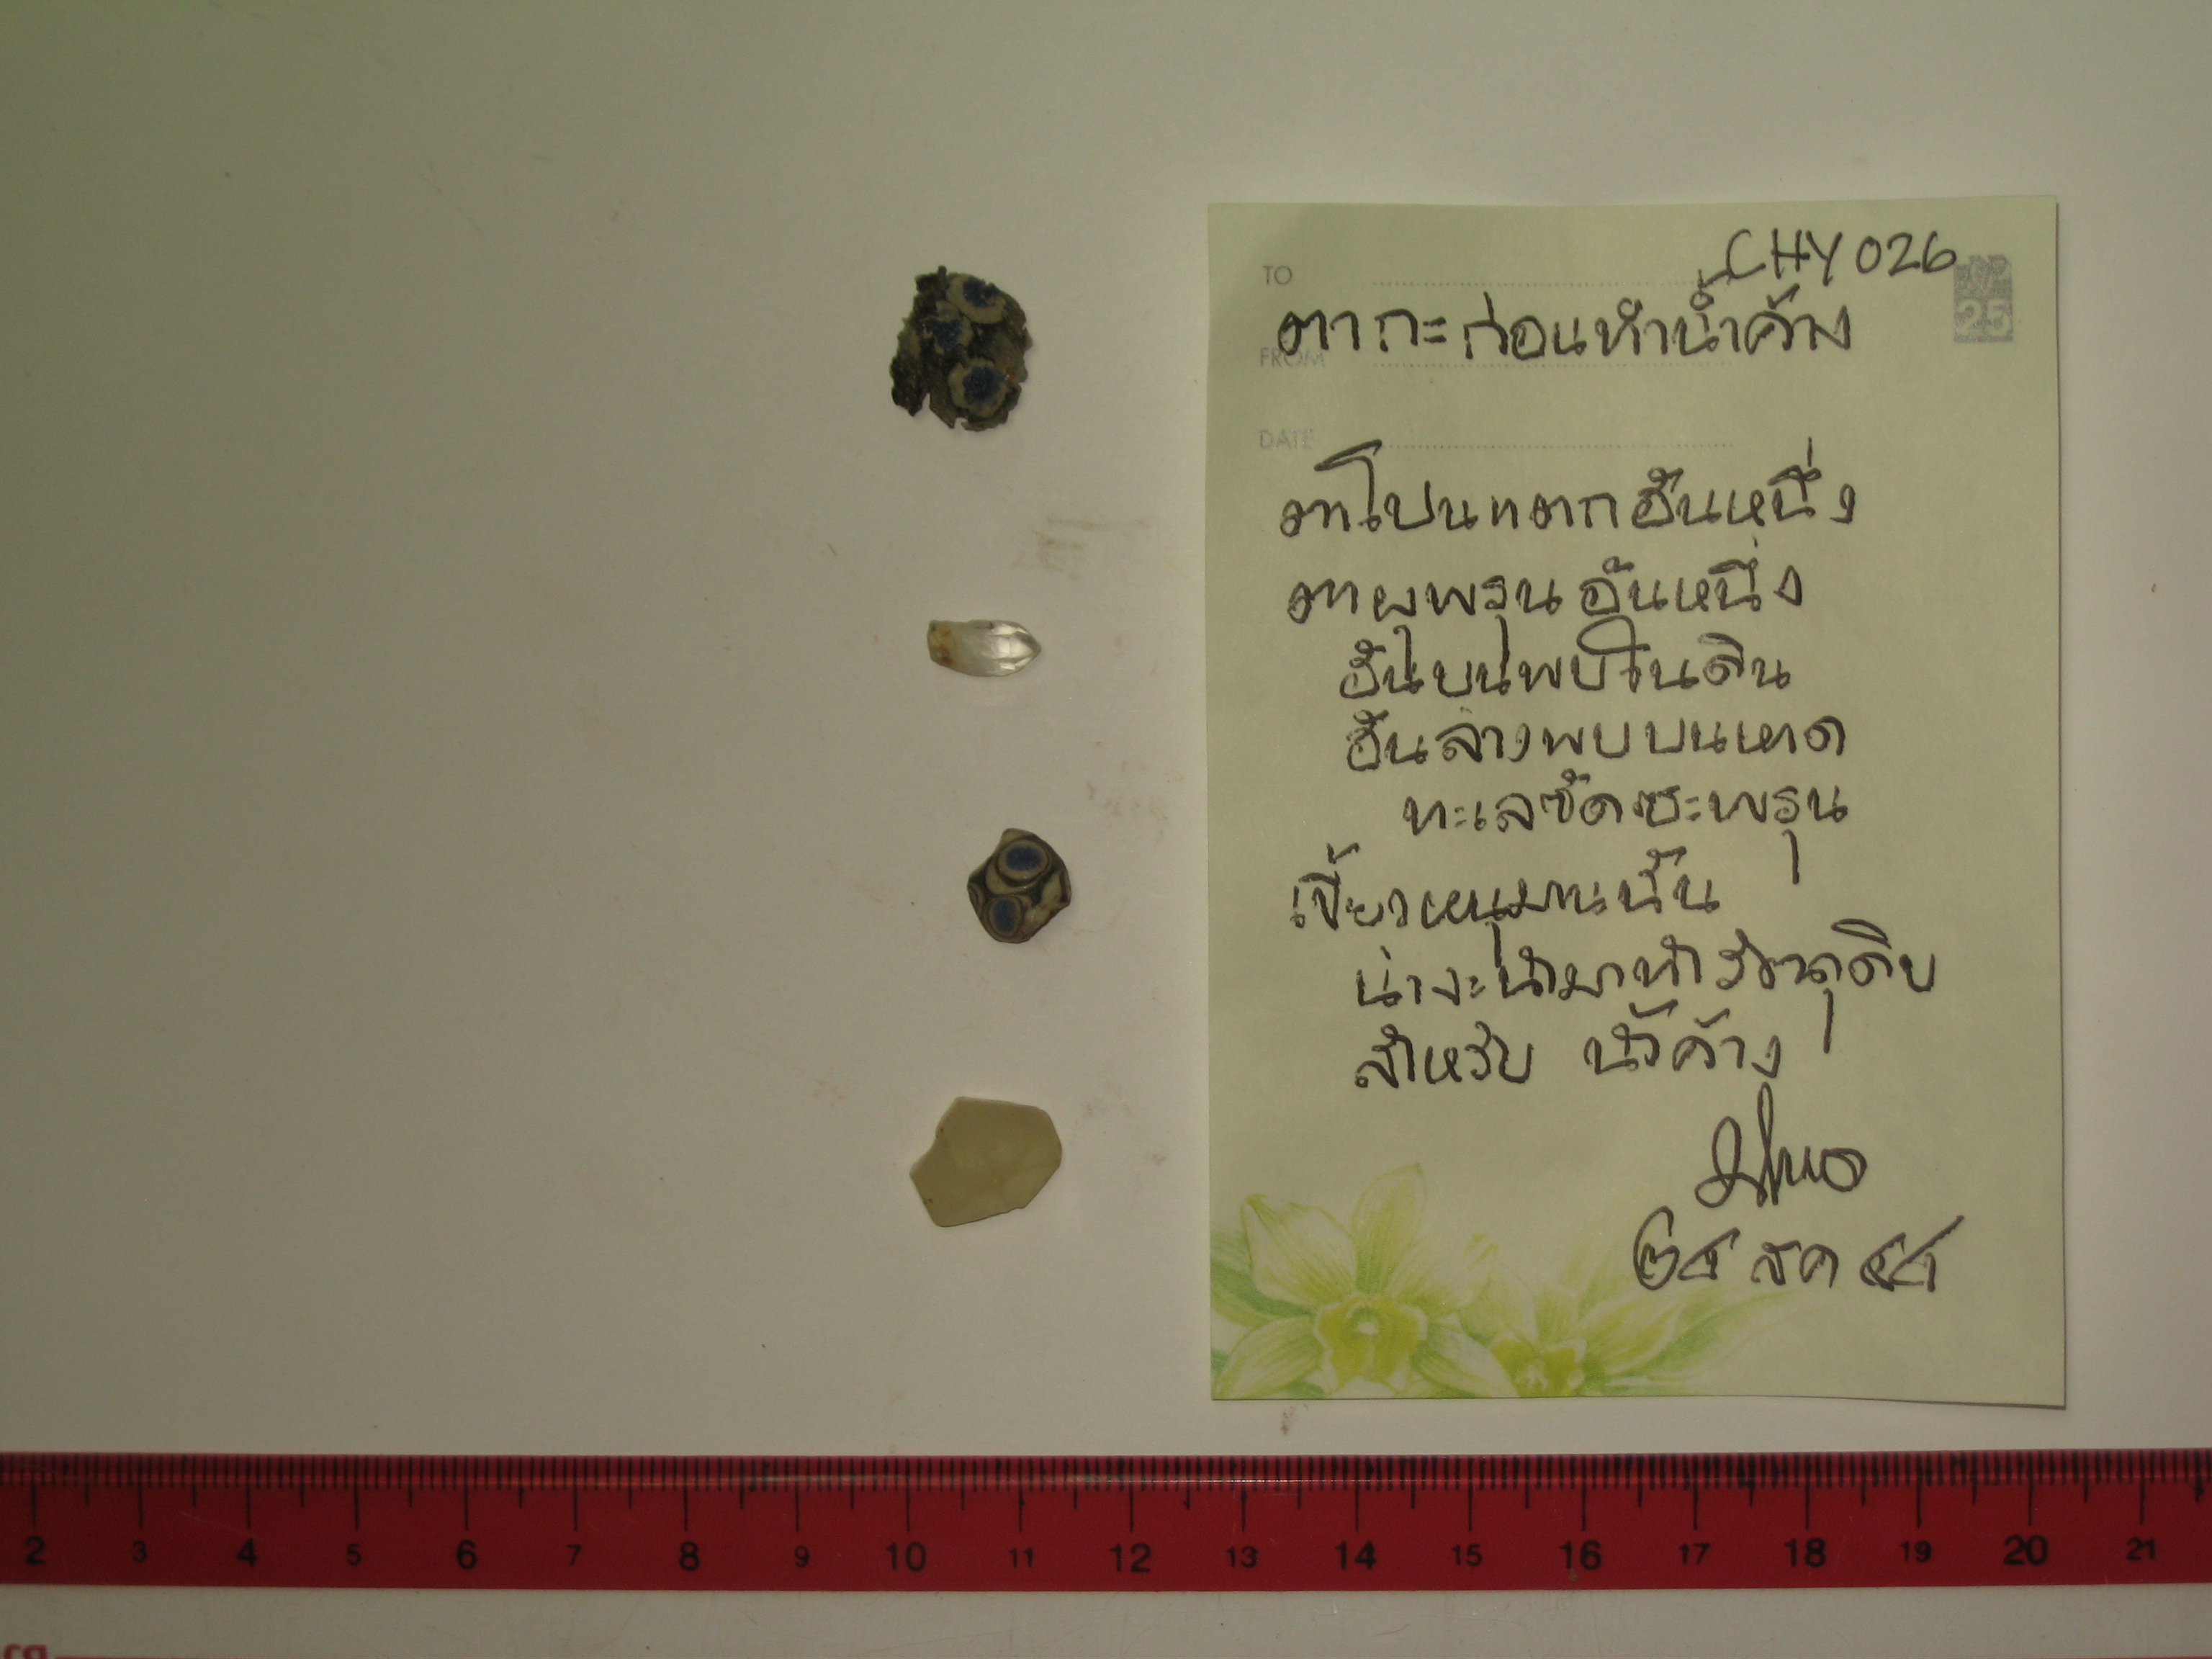 CHY 026
TO
25
ตา กะ ก่อนทำน้ำค้าง
FROM
DATE
ตาโปนแตกอันหนึ่ง
ตาผุพรุนอันหนึ่ง
อันบนพบในดิน
อันล่างพบบนหาด
ทะเลซัดซะพรุน
เขี้ยวหนุมานนั้น
น่าจะนำมาทำวัตถุดิบ
สำหรับ น้ำค้าง
๒๔ สค ๕๔
2 3 4 5 6 7 8 9 10 11 12 13 14 15 16 17 18 19 20 21